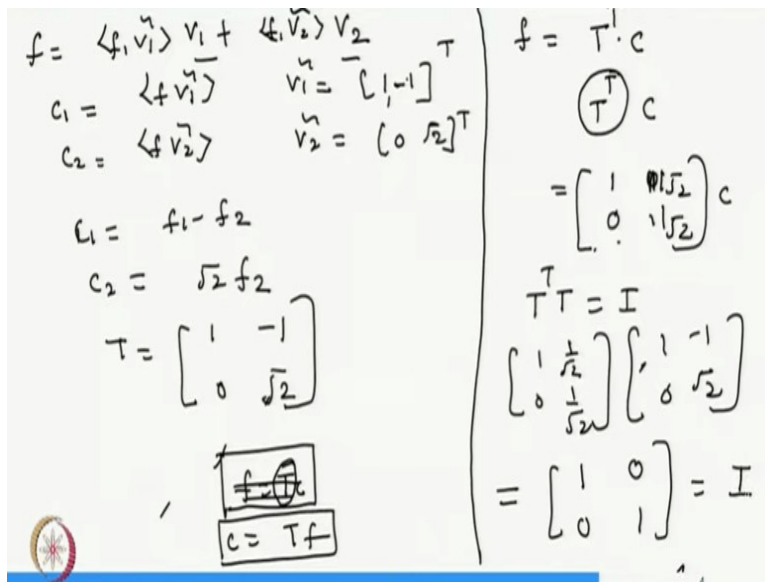 f = <f, ṽ1> v1 + <f, ṽ2> v2
c1 = <f ṽ1> ṽ1 = [1, -1]^T
c2 = <f ṽ2> ṽ2 = [0 √2]^T
c1 = f1 - f2
c2 = √2 f2
T = [1 -1
0 √2]
c = Tf
f = T^1 · c
T^T c
= [1 1/√2
0 1/√2] c
T^T T = I
[1 1/√2
0 1/√2] [1 -1
0 √2]
= [1 0
0 1] = I